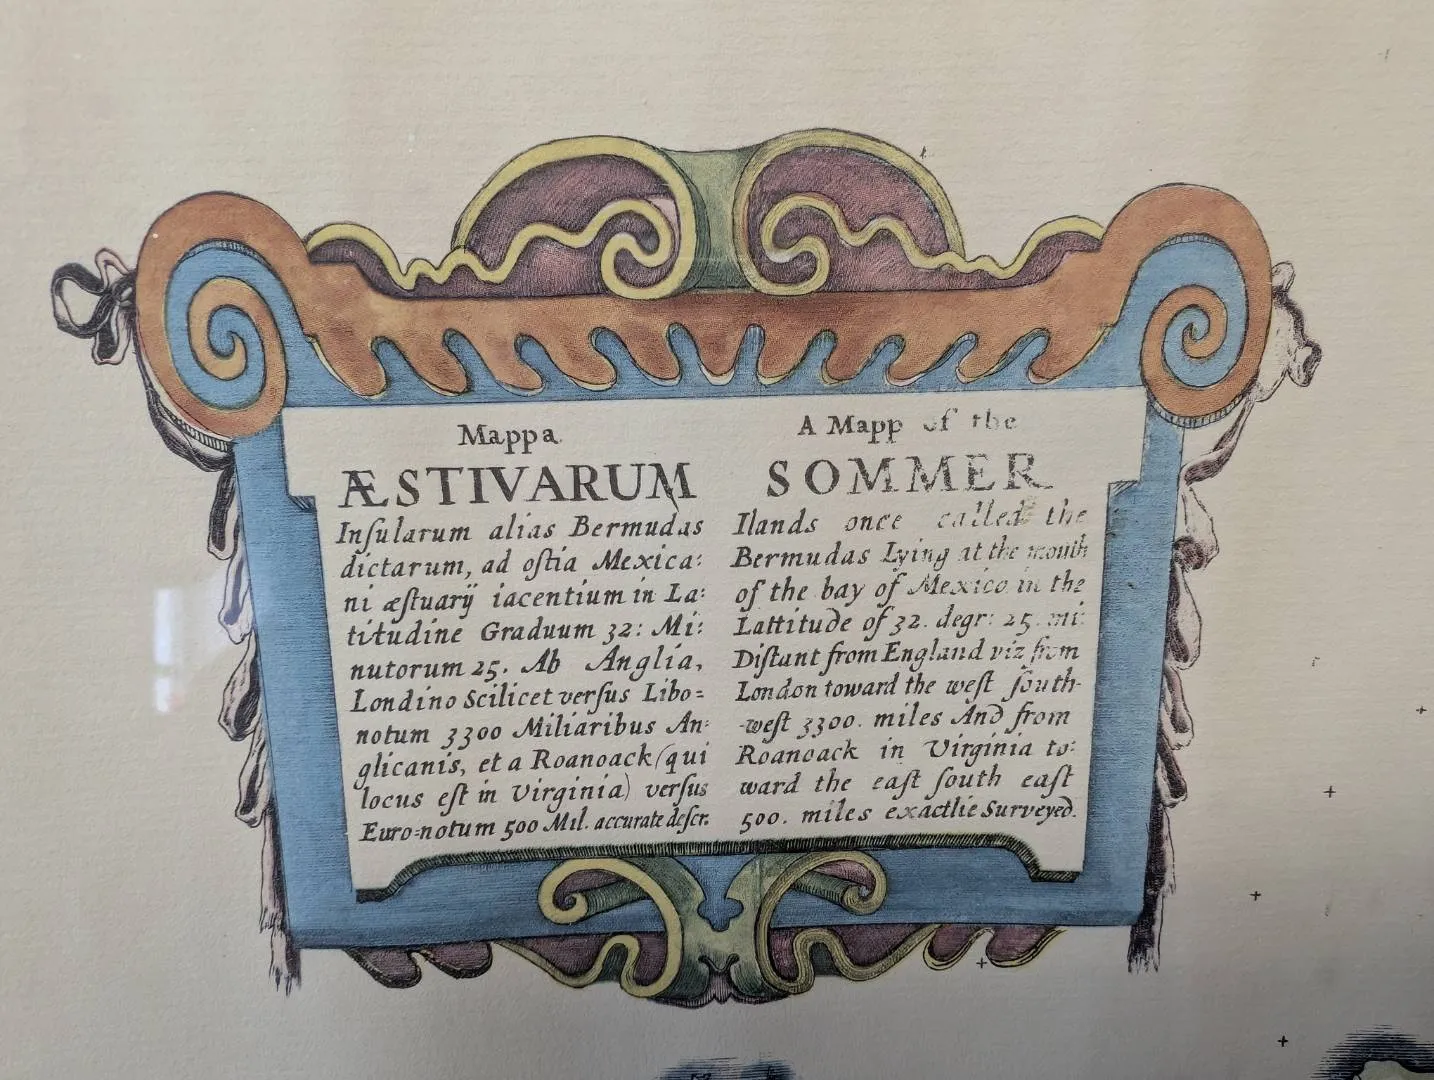 Mappa
ÆSTIVARUM
Inſularum alias Bermudas
dictarum, ad oſtia Mexica:
ni æſtuarÿ iacentium in La:
titudine Graduum 32: Mi:
nutorum 25. Ab Anglia,
Londino Scilicet verſus Libo=
notum 3300 Miliaribus An:
glicanis, et a Roanoack (qui
locus eſt in Virginia) verſus
Euro=notum 500 Mil. accurate deſcr.
A Mapp of the
SOMMER
Ilands once called the
Bermudas Lying at the mouth
of the bay of Mexico in the
Lattitude of 32. degr: 25. mi:
Diſtant from England viz from
London toward the weſt ſouth-
-weſt 3300. miles And from
Roanoack in Virginia to:
ward the eaſt ſouth eaſt
500. miles exactlie Surveyed.